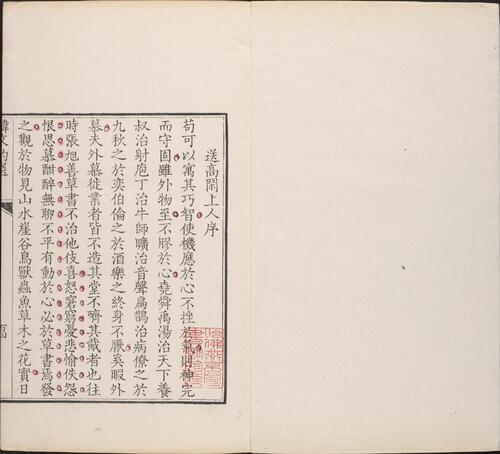 送高閑上人序
苟可以寓其巧智使機應於心不挫於氣則神完
而守固雖外物至不膠於心堯舜禹湯治天下養
叔治射庖丁治牛師曠治音聲扁鵲治病僚之於
九秋之於奕伯倫之於酒樂之終身不厭奚暇外
慕夫外慕徙業者皆不造其堂不嚌其胾者也往
時張旭善草書不治他伎喜怒窘窮憂悲愉佚怨
恨思慕酣醉無聊不平有動於心必於草書焉發
之觀於物見山水崖谷鳥獸蟲魚草木之花實日